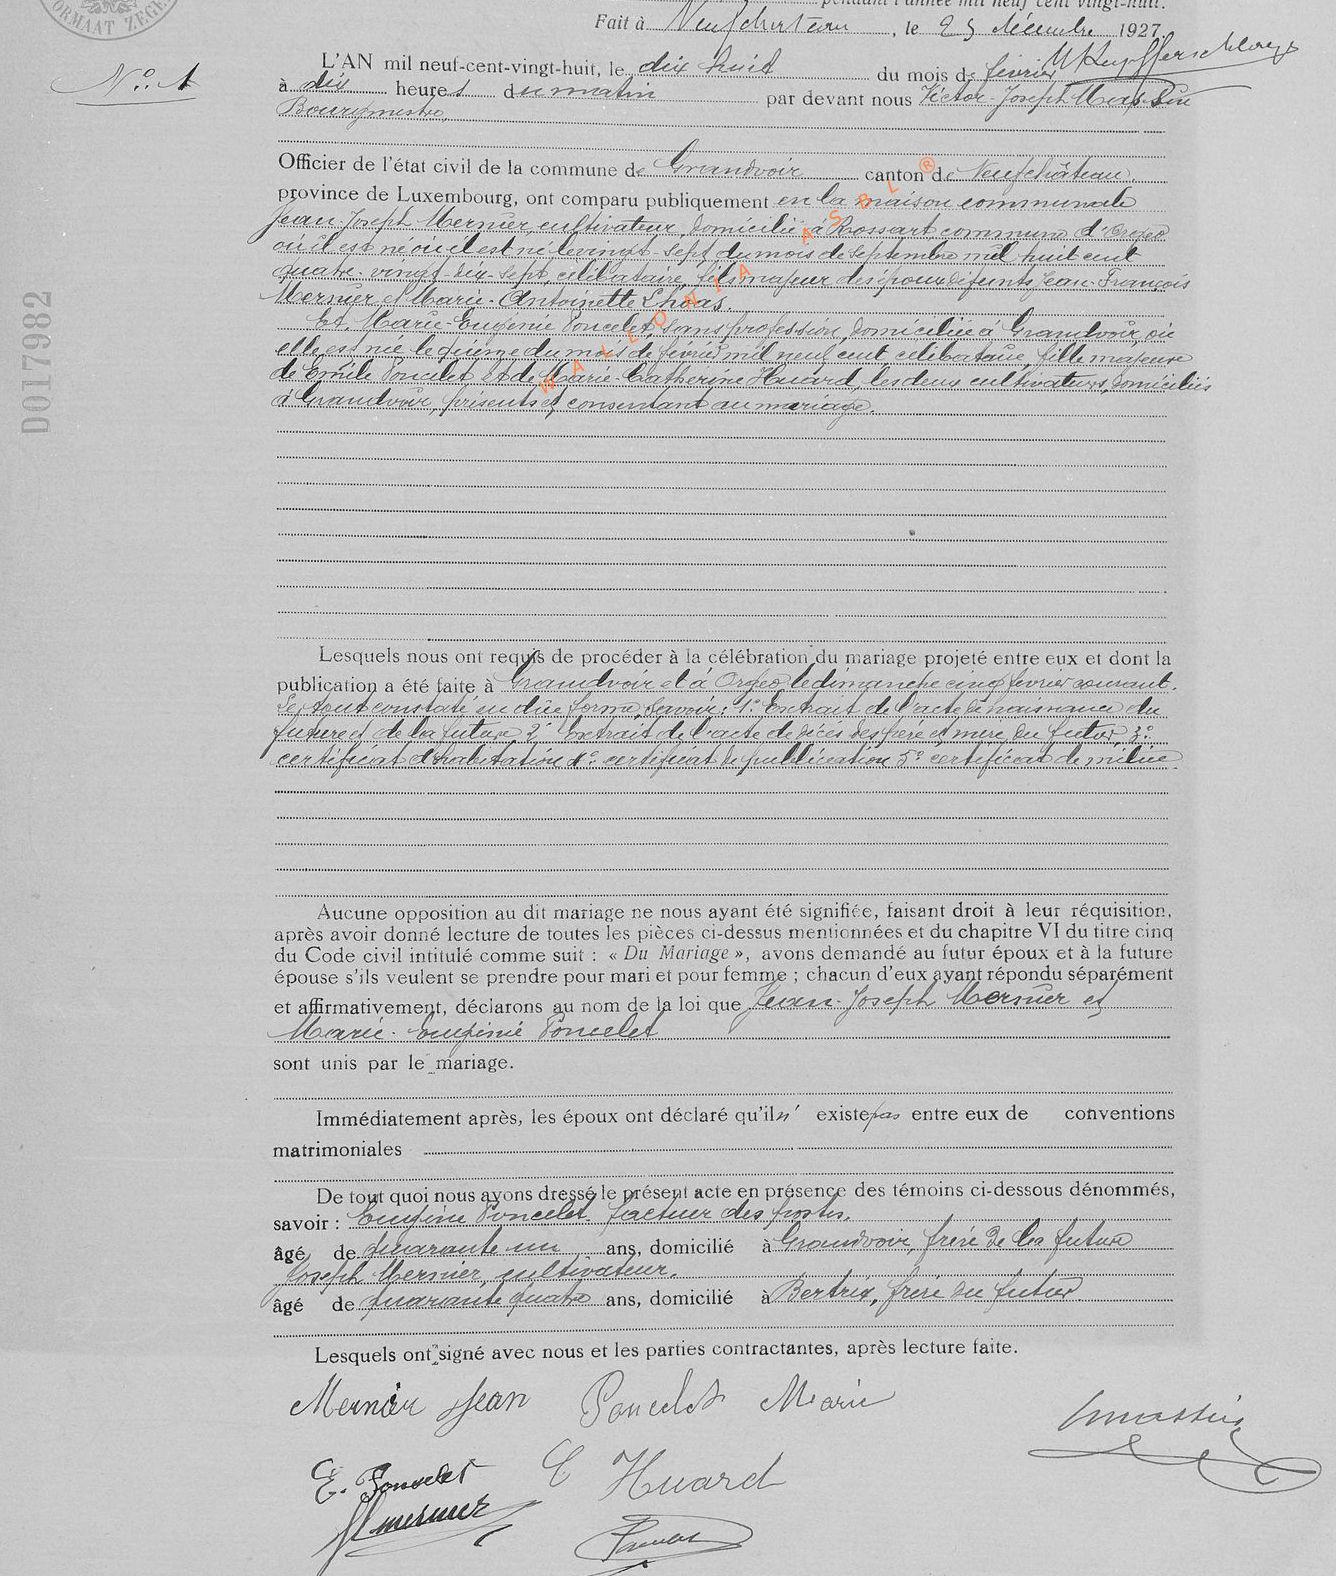 ORMAAT ZEGEL
pendant l'année mil neuf cent vingt-huit.
Fait à Neufchâteau, le 23 décembre 1927.
N° 1
L'AN mil neuf-cent-vingt-huit, le dix huit du mois de février
à dix heures du matin par devant nous Victor-Joseph Massin
Bourgmestre,
Officier de l'état civil de la commune de Grandvoir canton de Neufchâteau,
province de Luxembourg, ont comparu publiquement en la maison communale
Jean-Joseph Mernier cultivateur, domicilié à Rossart commune d'Orgeo
où il est né où il est né le vingt-sept du mois de septembre mil huit cent
quatre-vingt-dix-sept, célibataire, fils majeur des époux défunts Jean-François
Mernier et Marie-Antoinette Lhoas.
Et Marie-Eugénie Poncelet, sans profession, domiciliée à Grandvoir, où
elle est née le du mois de février mil neuf cent, célibataire, fille majeure
de Emile Poncelet et de Marie-Catherine Huard, les deux cultivateurs, domiciliés
à Grandvoir, présents et consentant au mariage.
WALLONIA ASBL ®
D017982
Lesquels nous ont requis de procéder à la célébration du mariage projeté entre eux et dont la
publication a été faite à Grandvoir et à Orgeo, le dimanche cinq février courant.
Le tout constaté en due forme, savoir: 1° Extrait de l'acte de naissance du
futur et de la future 2° Extrait de l'acte de décès des père et mère du futur 3°
certificat d'habitation 4° certificat de publication 5° certificat de milice
Aucune opposition au dit mariage ne nous ayant été signifiée, faisant droit à leur réquisition,
après avoir donné lecture de toutes les pièces ci-dessus mentionnées et du chapitre VI du titre cinq
du Code civil intitulé comme suit : « Du Mariage », avons demandé au futur époux et à la future
épouse s'ils veulent se prendre pour mari et pour femme ; chacun d'eux ayant répondu séparément
et affirmativement, déclarons au nom de la loi que Jean-Joseph Mernier et
Marie-Eugénie Poncelet
sont unis par le mariage.
Immédiatement après, les époux ont déclaré qu'il n' existe pas entre eux de conventions
matrimoniales
De tout quoi nous avons dressé le présent acte en présence des témoins ci-dessous dénommés,
savoir : Eugène Poncelet facteur des postes,
âgé de quarante un ans, domicilié à Grandvoir, frère de la future
Joseph Mernier, cultivateur,
âgé de quarante quatre ans, domicilié à Bertrix, frère du futur
Lesquels ont signé avec nous et les parties contractantes, après lecture faite.
Mernier Jean Poncelet Marie
Massin
E. Poncelet C Huard
Mernier